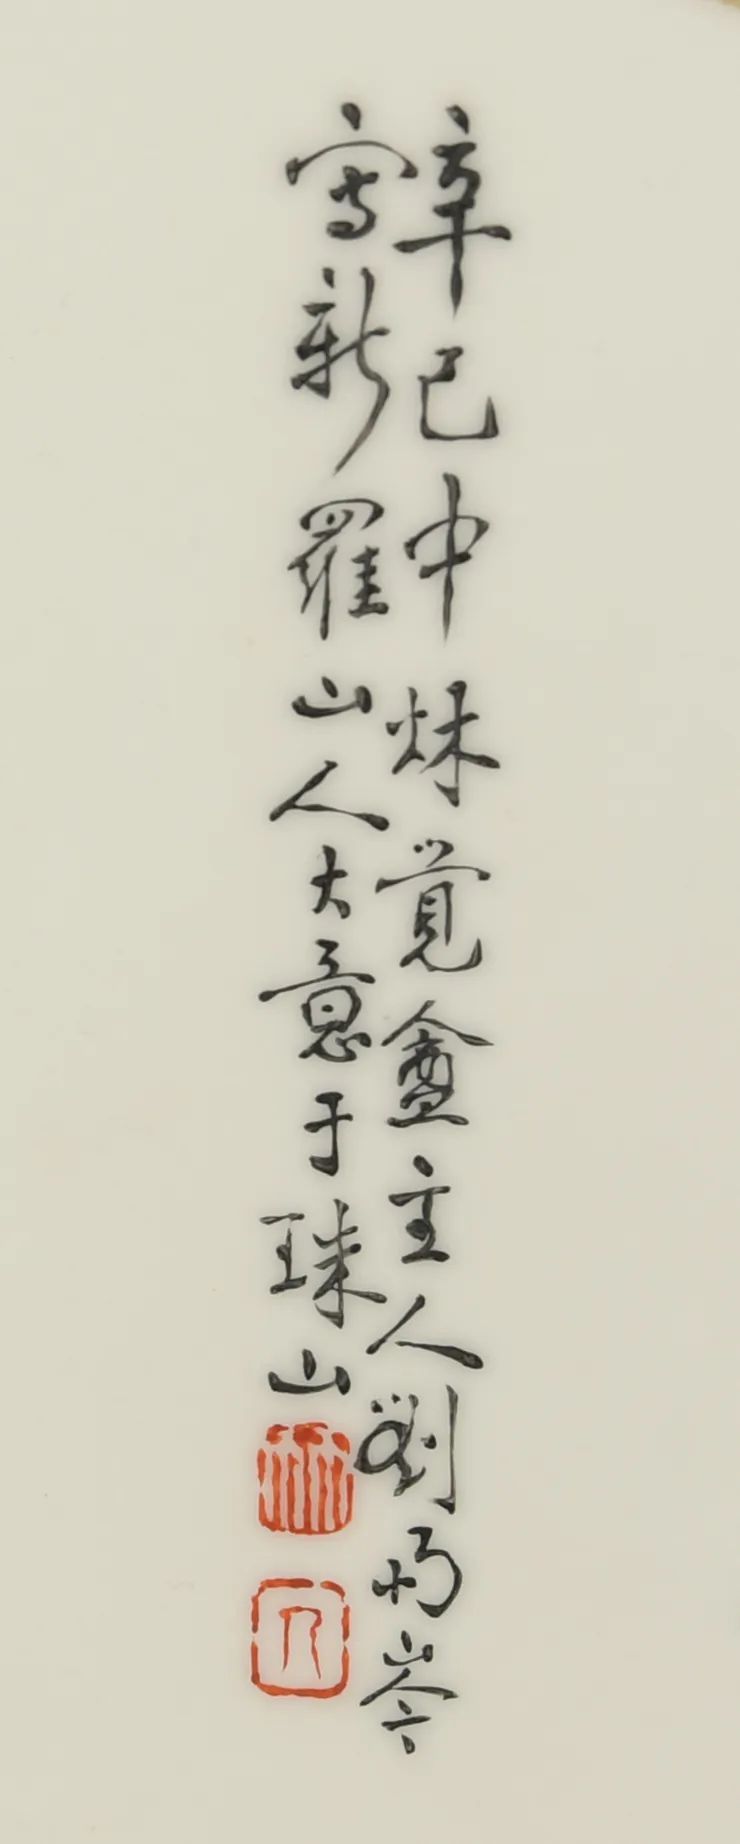 辛巳中秌覚盦主人劉雨岑
寫新羅山人大意于珠山
人